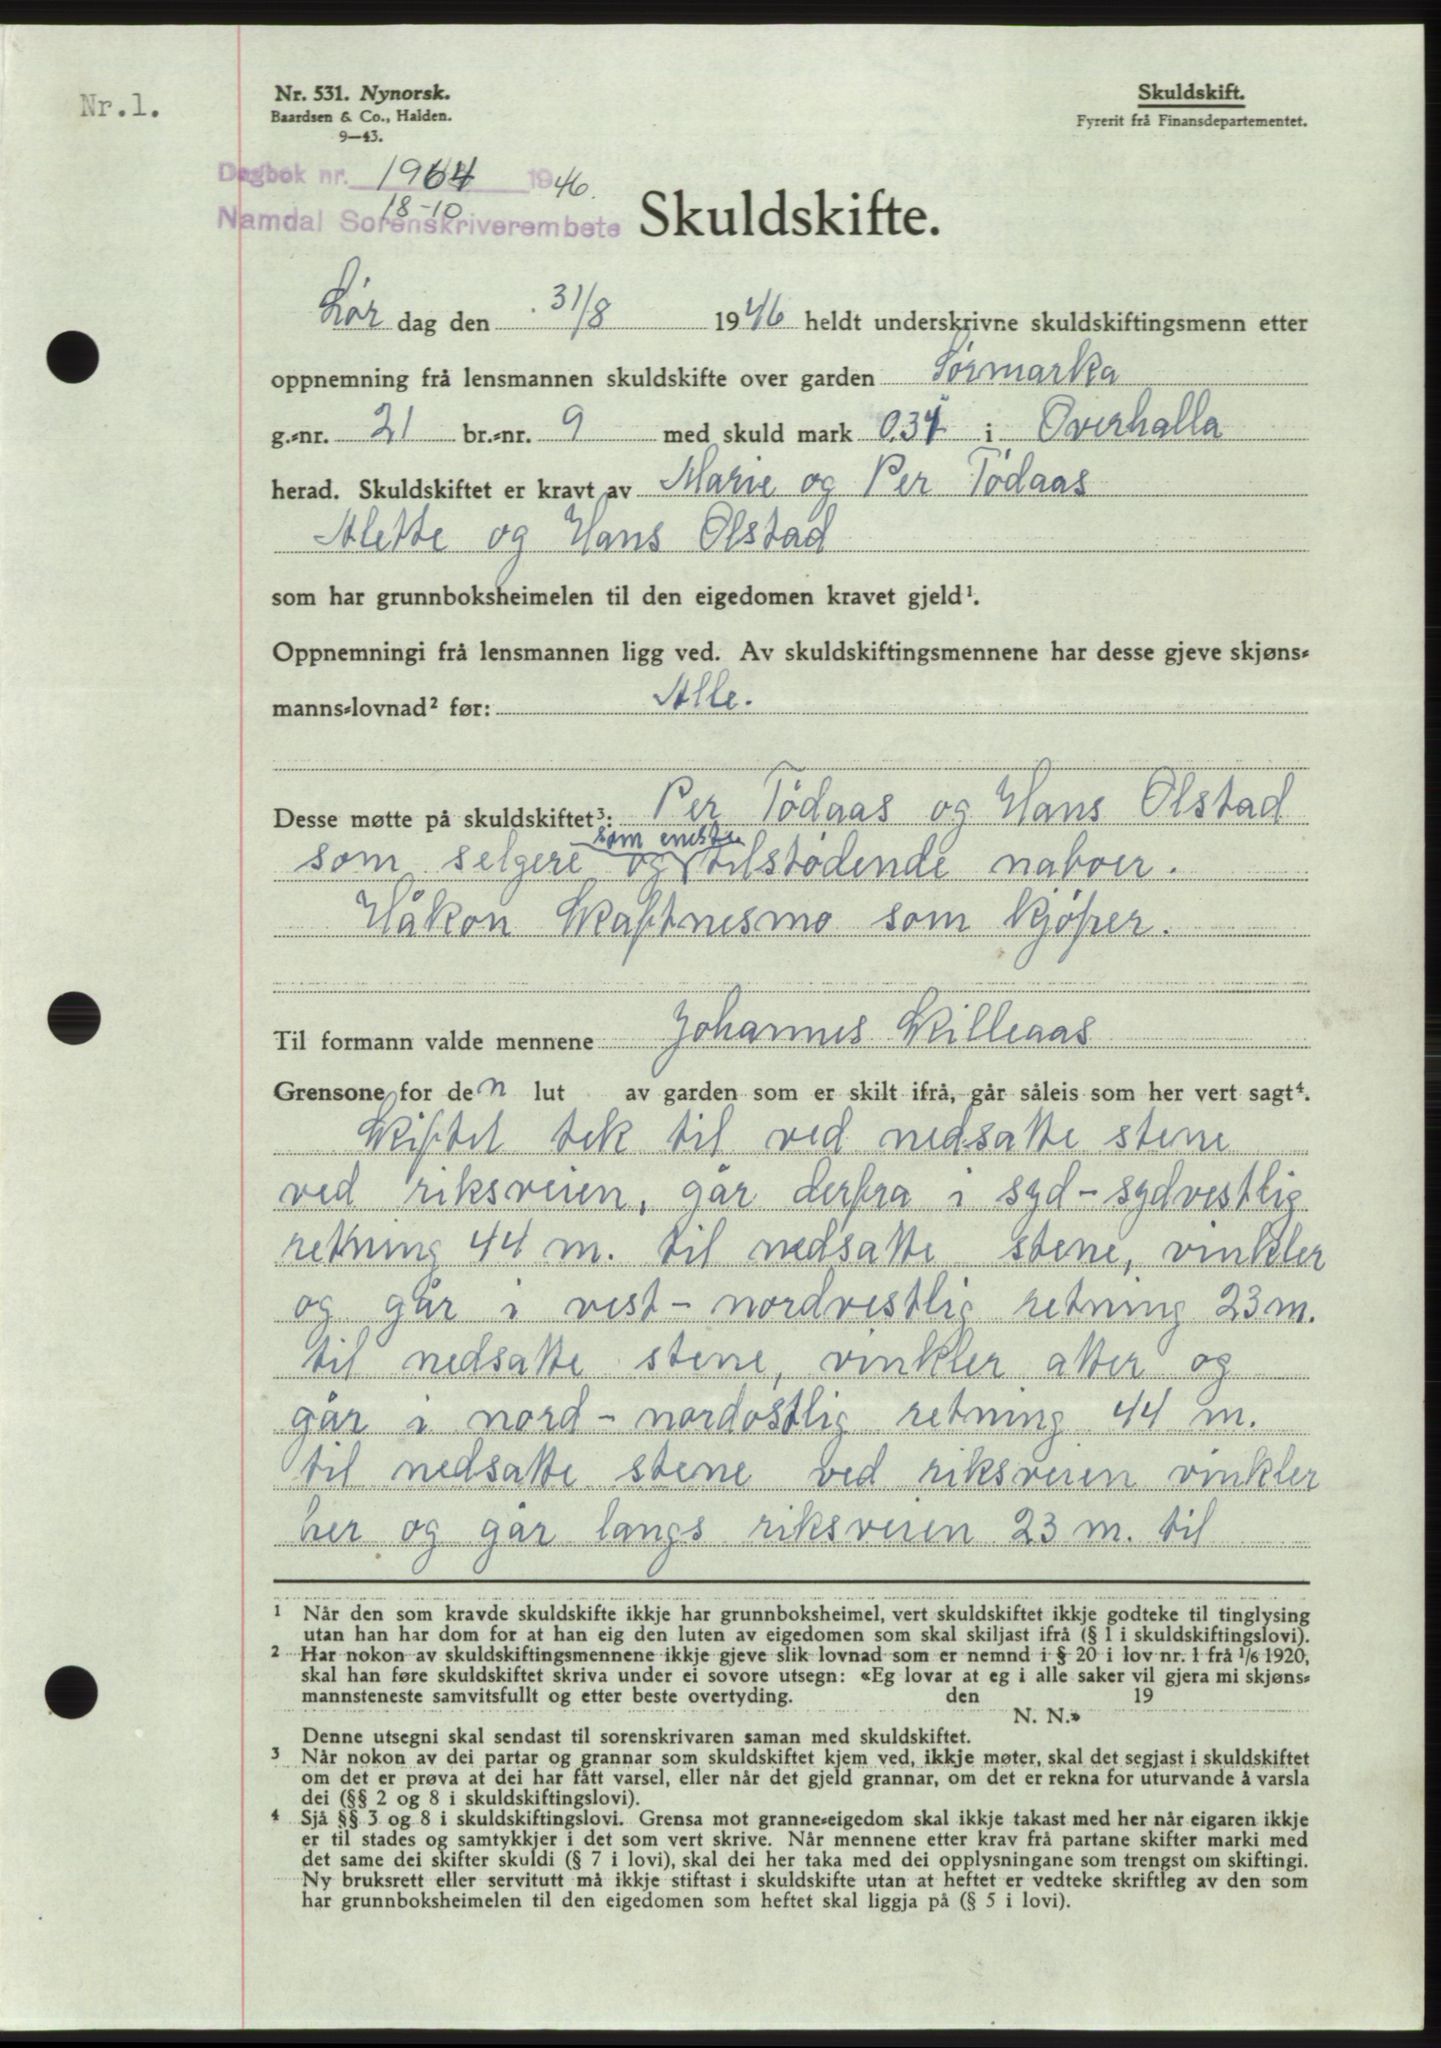 Nr.1.
Nr. 531. Nynorsk.
Baardsen & Co., Halden.
9—43.
Skuldskift.
Fyrerit frå Finansdepartementet.
Dagbok nr. 1964 1946.
18-10
Namdal Sorenskriverembete
Skuldskifte.
Lør dag den 31/8 1946 heldt underskrivne skuldskiftingsmenn etter
oppnemning frå lensmannen skuldskifte over garden Sørmarka
g.-nr. 21 br.-nr. 9 med skuld mark 0.34 i Overhalla
herad. Skuldskiftet er kravt av Marie og Per Tödaas
Alette og Hans Olstad
som har grunnboksheimelen til den eigedomen kravet gjeld¹.
Oppnemningi frå lensmannen ligg ved. Av skuldskiftingsmennene har desse gjeve skjøns-
manns-lovnad² før: Alle.
Desse møtte på skuldskiftet³: Per Tödaas og Hans Olstad
som enste
som selgere og tilstödende naboer.
Håkon Skaftnesmo som kjöper.
Til formann valde mennene Johannes Skilleaas
Grensone for den lut av garden som er skilt ifrå, går såleis som her vert sagt⁴.
Skiftet tek til ved nedsatte stene
ved riksveien, går derfra i syd-sydvestlig
retning 44 m. til nedsatte stene, vinkler
og går i vest-nordvestlig retning 23 m.
til nedsatte stene, vinkler atter og
går i nord-nordostlig retning 44 m.
til nedsatte stene ved riksveien vinkler
her og går langs riksveien 23 m. til
1 Når den som kravde skuldskifte ikkje har grunnboksheimel, vert skuldskiftet ikkje godteke til tinglysing
utan han har dom for at han eig den luten av eigedomen som skal skiljast ifrå (§ 1 i skuldskiftingslovi).
2 Har nokon av skuldskiftingsmennene ikkje gjeve slik lovnad som er nemnd i § 20 i lov nr. 1 frå 1/6 1920,
skal han føre skuldskiftet skriva under ei sovore utsegn: «Eg lovar at eg i alle saker vil gjera mi skjøns-
mannsteneste samvitsfullt og etter beste overtyding. den 19
N. N.»
Denne utsegni skal sendast til sorenskrivaren saman med skuldskiftet.
3 Når nokon av dei partar og grannar som skuldskiftet kjem ved, ikkje møter, skal det segjast i skuldskiftet
om det er prøva at dei har fått varsel, eller når det gjeld grannar, om det er rekna for uturvande å varsla
dei (§§ 2 og 8 i skuldskiftingslovi).
4 Sjå §§ 3 og 8 i skuldskiftingslovi. Grensa mot granne-eigedom skal ikkje takast med her når eigaren ikkje
er til stades og samtykkjer i det som vert skrive. Når mennene etter krav frå partane skifter marki med
det same dei skifter skuldi (§ 7 i lovi), skal dei her taka med dei opplysningane som trengst om skiftingi.
Ny bruksrett eller servitutt må ikkje stiftast i skuldskifte utan at heftet er vedteke skriftleg av den som
har grunnboksheimelen til den eigedomen som heftet skal liggja på (§ 5 i lovi).